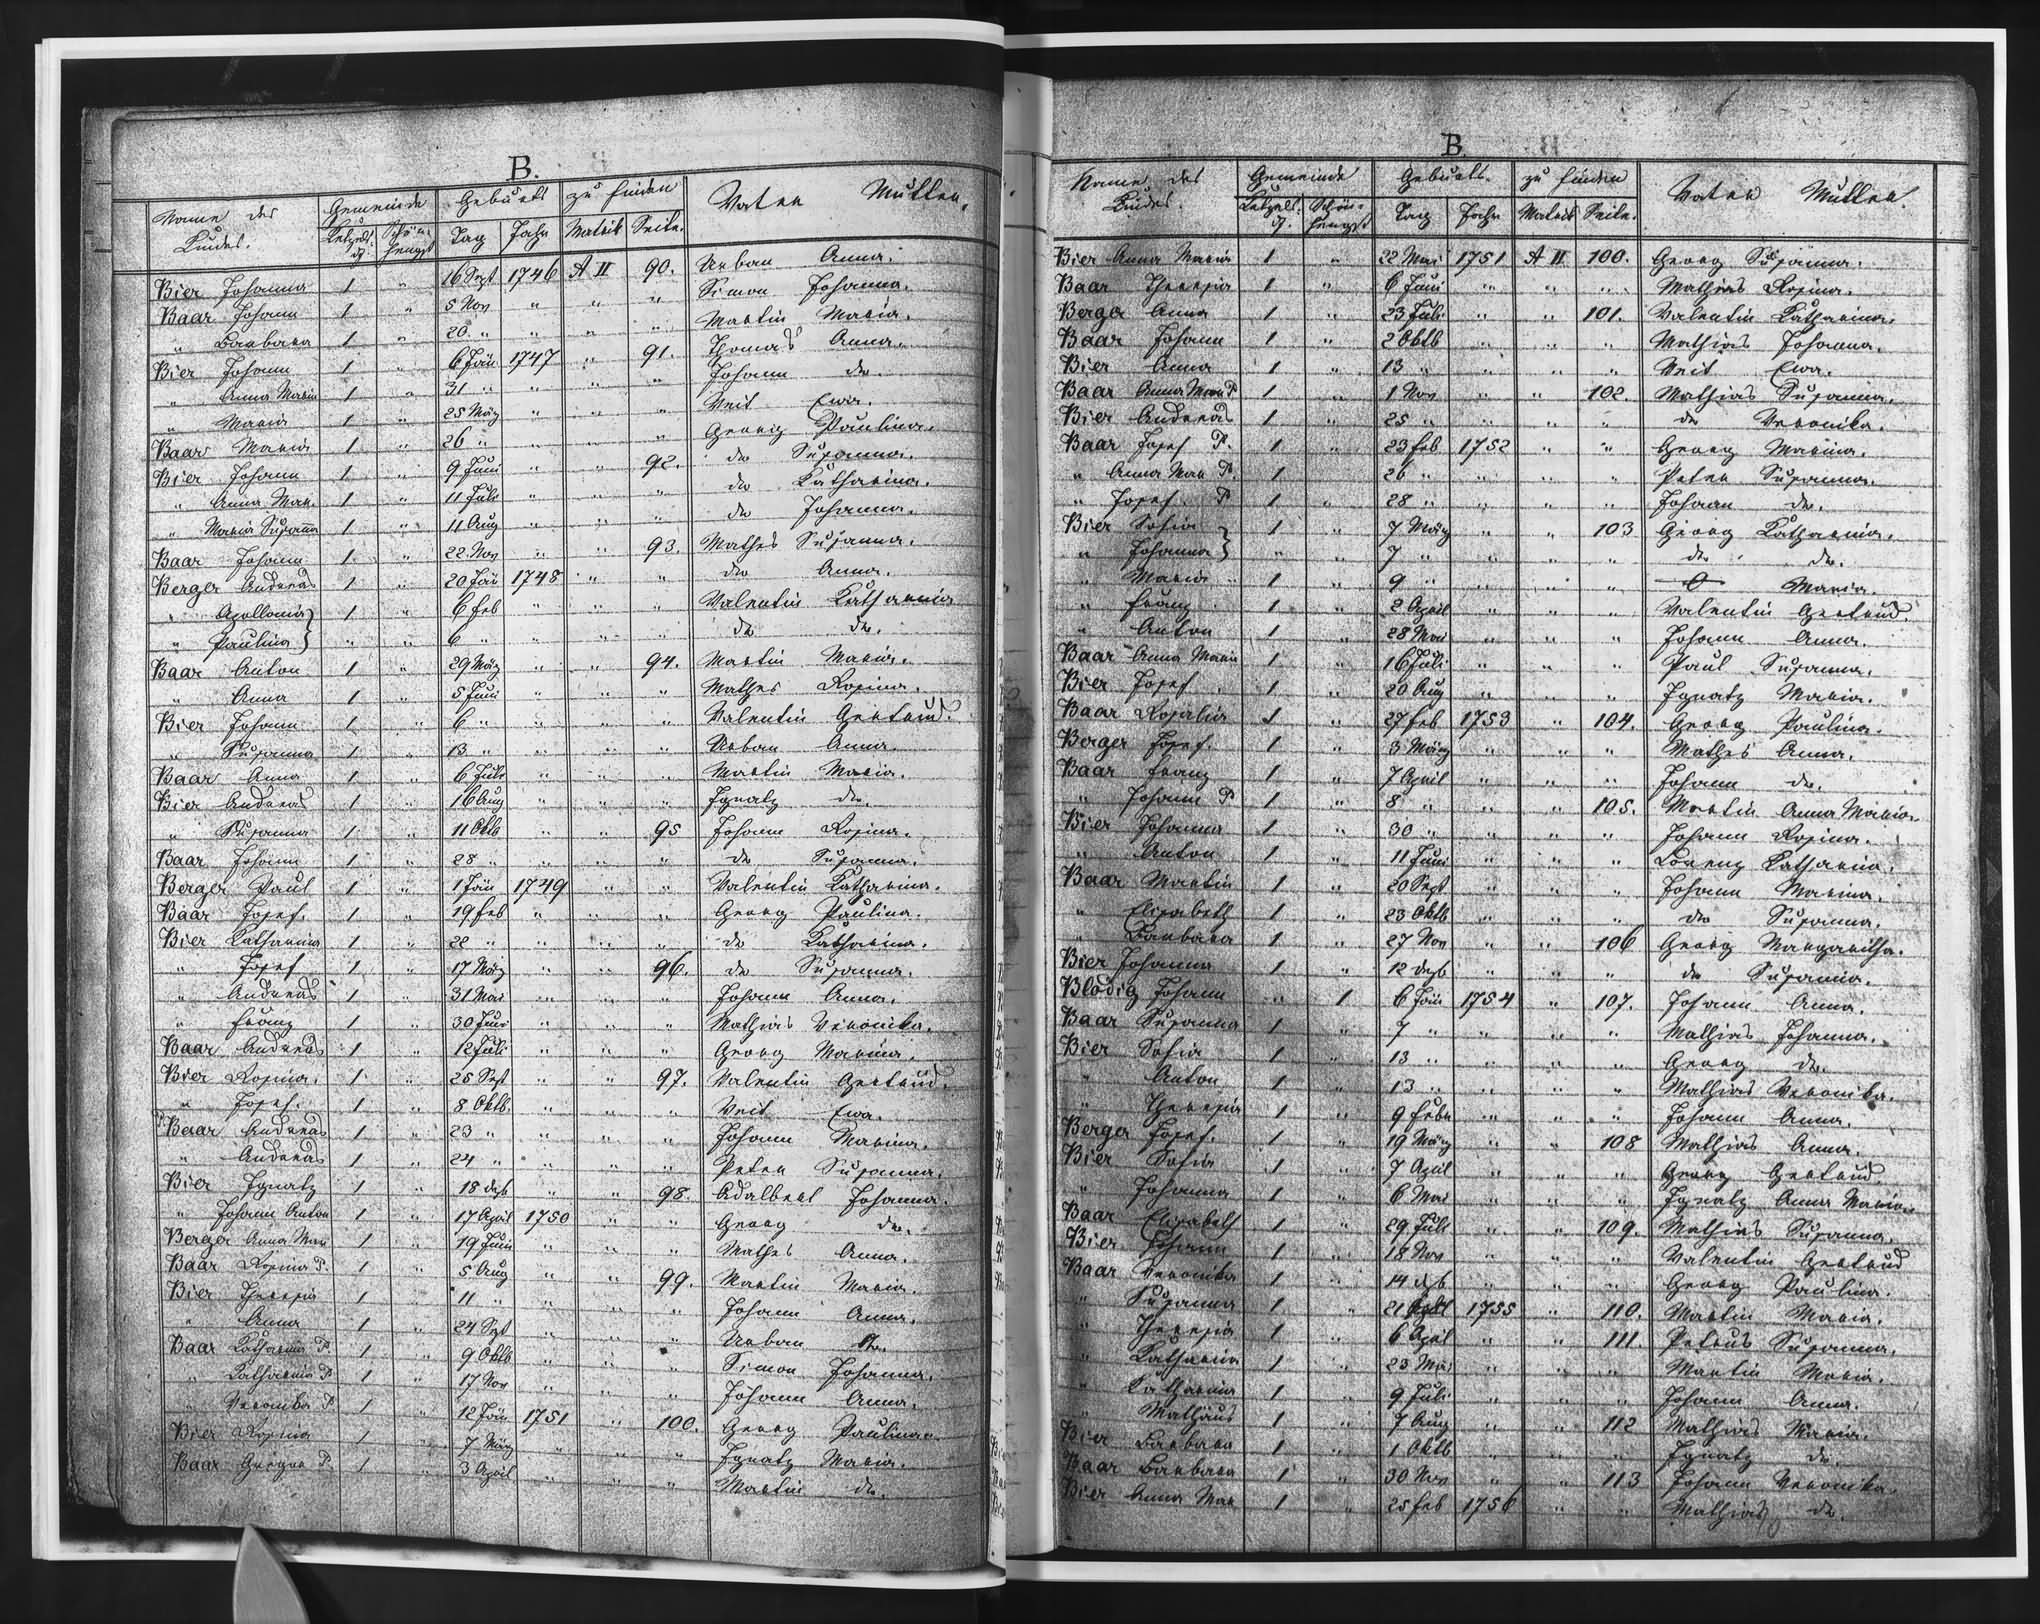 B.
Name des Kindes. Gemeinde Geburts zu finden Vater Mutter.
Ketzelsd. Schönhengst Tag Jahr Matrik Seite.
Bier Johanna 1 " 16 Sept 1746 A II 90. Urban Anna.
Baar Johann 1 " 5 Nov " " " Simon Johanna.
" Barbara 1 " 20 " " " " Martin Maria.
Bier Johann 1 " 6 Jän 1747 " 91. Thomas Anna.
" Anna Maria 1 " 31 " " " " Johann do.
" Maria 1 " 25 März " " " Veit Ewa.
Baar Maria 1 " 26 " " " " Georg Paulina.
Bier Johann 1 " 9 Juni " " 92. do Susanna.
" Anna Mar. 1 " 11 Juli " " " do Katharina.
" Maria Susanna 1 " 11 Aug " " " do Johanna.
Baar Johann 1 " 22 Nov " " 93. Mathes Susanna.
Berger Andreas 1 " 20 Jän 1748 " " do Anna.
" Apollonia } 1 " 6 Feb " " " Valentin Katharina
" Paulina } " " 6 " " " " do do.
Baar Anton 1 " 29 März " " 94. Martin Maria.
" Anna 1 5 Juni " " " Mathes Rosina.
Bier Johann 1 " 6 " " " " Valentin Gertrud.
" Susanna 1 " 13 " " " " Urban Anna.
Baar Anna 1 " 6 Juli " " " Martin Maria.
Bier Andreas 1 " 16 Aug " " " Ignatz do.
" Susanna 1 " 11 Oktb " " 95 Johann Rosina.
Baar Johann 1 " 28 " " " " do Susanna.
Berger Paul 1 " 1 Jän 1749 " " Valentin Katharina.
Baar Josef. 1 " 19 Feb " " " Georg Paulina.
Bier Katharina 1 " 22 " " " " do Katharina.
" Josef 1 " 17 März " " 96. do Susanna.
" Andreas 1 " 31 Mai " " " Johann Anna.
" Franz 1 " 30 Juni " " " Mathias Veronika.
Baar Andreas 1 " 12 Juli " " " Georg Marina.
Bier Rosina. 1 " 25 Sept " " 97. Valentin Gertrud.
" Josef. 1 " 8 Oktb. " " " Veit Ewa.
Baar Andreas 1 " 23 " " " " Johann Marina.
" Andreas 1 " 24 " " " " Peter Susanna.
Bier Ignatz 1 " 18 Dezb " " 98. Adalbert Johanna.
" Johann Anton 1 " 17 April 1750 " " Georg do.
Berger Anna Mar 1 " 19 Juni " " " Mathes Anna.
Baar Rosina P. 1 " 5 Aug " " 99. Martin Maria.
Bier Theresia 1 " 11 " " " " Johann Anna.
" Anna 1 " 24 Sept " " " Urban do.
Baar Katharina P. 1 " 9 Oktb " " " Simon Johanna.
" Katharina P. 1 " 17 Nov " " " Johann Anna.
" Veronika P 1 " 12 Jän 1751 " 100. Georg Paulina.
Bier Rosina 1 " 7 März " " " Ignatz Maria.
Baar P. 1 " 3 April " " " Martin do.
B.
Name des Kindes. Gemeinde Geburts. zu finden Vater Mutter.
Ketzelsd. Schönhengst Tag Jahr Matrik Seite.
Bier Anna Maria 1 " 22 Mai 1751 A II 100. Georg Susanna.
Baar Theresia 1 " 6 Juni " " " Mathias Rosina.
Berger Anna 1 " 23 Juli " " 101. Valentin Katharina.
Baar Johann 1 " 2 Oktb " " " Mathias Johanna.
Bier Anna 1 " 13 " " " " Veit Ewa.
Baar Anna Maria P 1 " 1 Nov " " 102. Mathias Susanna.
Bier Andreas 1 " 25 " " " " do Veronika.
Baar Josef P. 1 " 23 Feb 1752 " " Georg Marina.
" Anna Mar P. 1 " 26 " " " " Peter Susanna.
" Josef P 1 " 28 " " " " Johann do.
Bier Sofia } 1 " 7 März " " 103 Georg Katharina.
" Johanna } " " 7 " " " " do do.
" Maria 1 " 9 " " " " O Maria.
" Franz 1 " 2 April " " " Valentin Gertrud.
" Anton 1 " 28 Mai " " " Johann Anna.
Baar Anna Maria 1 " 16 Juli " " " Paul Susanna.
Bier Josef. 1 " 20 Aug " " " Ignatz Maria.
Baar Rosalia 1 " 27 Feb 1753 " 104. Georg Paulina.
Berger Josef. 1 " 3 März " " " Mathes Anna.
Baar Franz 1 " 7 April " " " Johann do.
" Johann P 1 " 8 " " " 105. Martin Anna Maria.
Bier Johanna 1 " 30 " " " " Johann Rosina.
" Anton 1 " 11 Juni " " " Lorenz Katharina.
Baar Martin 1 " 20 Sept " " " Johann Marina.
" Elisabeth 1 " 23 Oktb " " " do Susanna.
" Barbara 1 " 27 Nov " " 106 Georg Margaritha.
Bier Johanna 1 " 12 Dezb " " " do Susanna.
Blodig Johann " 1 6 Jän 1754 " 107. Johann Anna.
Baar Susanna 1 " 7 " " " " Mathias Johanna.
Bier Sofia 1 " 13 " " " " Georg do.
" Anton 1 " 13 " " " " Mathias Veronika.
" Theresia 1 " 9 Febr " " " Johann Anna.
Berger Josef. 1 " 19 März " " 108 Mathias Anna.
Bier Sofia 1 " 7 April " " " Georg Gertrud.
" Johanna 1 " 6 Mai " " " Ignatz Anna Maria.
Baar Elisabeth 1 " 29 Juli " " 109. Mathias Susanna.
Bier Johann 1 " 18 Nov " " " Valentin Gertrud
Baar Veronika 1 " 14 Dezb " " " Georg Paulina.
" Susanna 1 " 21 1755 " 110. Martin Maria.
" Theresia 1 " 6 April " " 111. Petrus Susanna.
" Katharina 1 " 23 Mai " " " Martin Maria.
" Katharina 1 " 9 Juli " " " Johann Anna.
" Mathäus 1 " 7 Aug " " 112 Mathias Maria.
Bier Barbara 1 " 1 Oktb " " " Ignatz do.
Baar Barbara 1 " 30 Nov " " 113 Johann Veronika.
Bier Anna Mar 1 " 25 Feb 1756 " " Mathias do.